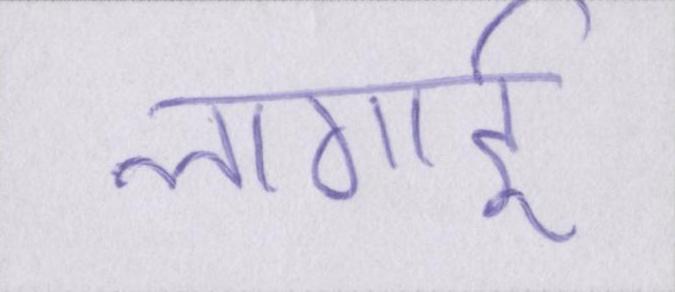 लागाई